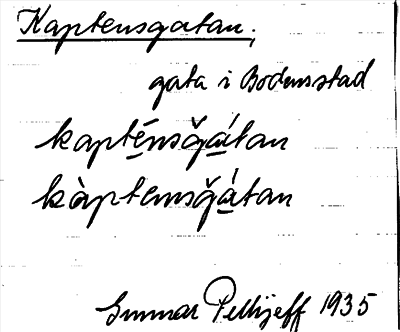 Kaptensgatan.
gata i Bodens stad
kapténsgátan
kàptensgátan
Gunnar Pellijeff 1935